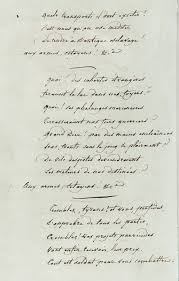 quels transports il doit exciter!
C'est nous qu'on ose méditer
De rendre à l'antique esclavage!
aux armes, citoyens! &c.a
quoi! des cohortes étrangères
feraient la loi dans nos foyers!
quoi! ces phalanges mercenaires
Terrasseraient nos fiers guerriers
Grand dieu! par des mains enchaînées
Nos fronts sous le joug se ploieraient
De vils despotes deviendraient
Les maîtres de nos destinées
Aux armes, citoyens! &c.a
Tremblez, tyrans! et vous perfides
L'opprobre de tous les partis,
Tremblez! vos projets parricides
Vont enfin recevoir leur prix
Tout est soldat pour vous combattre